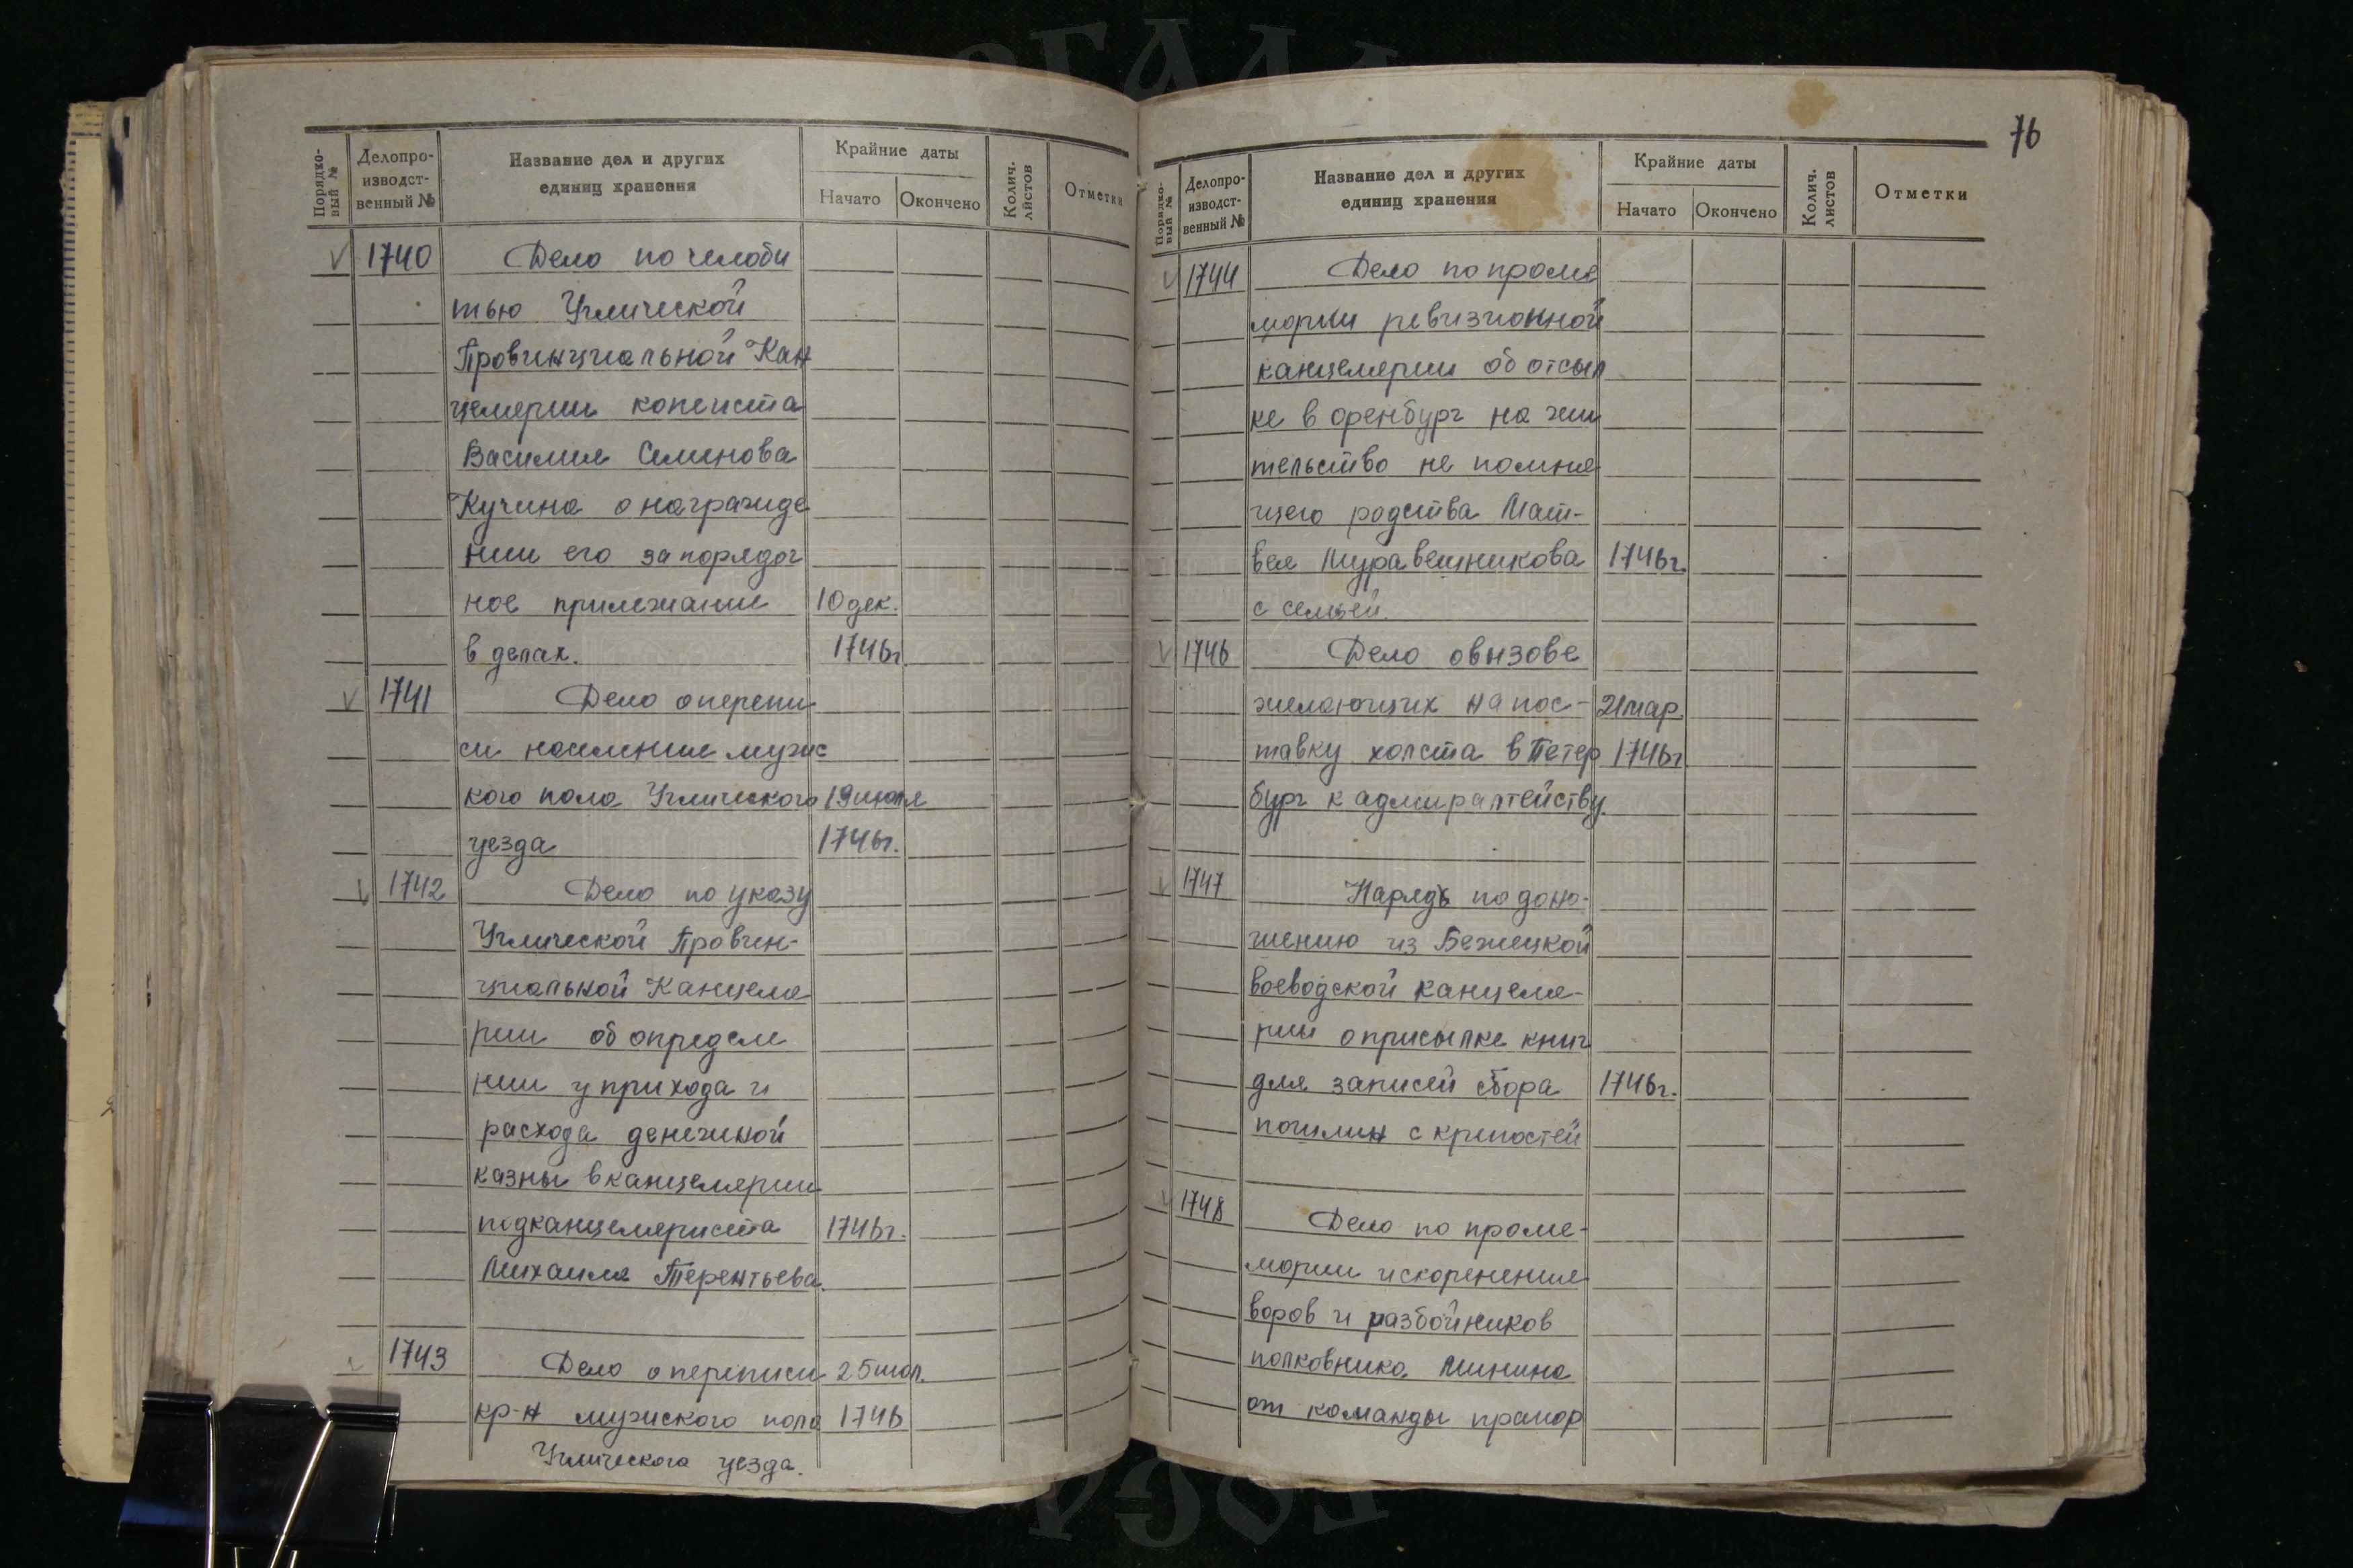 Порядко-
вый №
Делопро-
изводст-
венный №
Название дел и других
единиц хранения
Крайние даты
Начато
Окончено
Колич.
листов
Отметки
1740 Дело по челоби
тью Углической
Провинциальной Кан
целерии копеиста
Василия Семенова
Кучина о награжде
нии его за порядоч
ное прилежание 10 дек.
в делах. 1746г
1741 Дело о перепи
си населения мужс
кого пола Углического 19 июля
уезда 1746г.
1742 Дело по указу
Углической Провин-
циальной Канцеле
рии об определе
нии у прихода и
расхода денежной
казны в канцелерии
подканцелериста 1746г.
Михаила Терентьева.
1743 Дело о переписи 25 июл.
кр-н мужского пола 1746
Углического уезда.
76
Порядко-
вый №
Делопро-
изводст-
венный №
Название дел и других
единиц хранения
Крайние даты
Начато
Окончено
Колич.
листов
Отметки
1744 Дело по проме
мории ревизионной
канцелерии об отсыл
ке в оренбург на жи
тельство не помня
щего родства Мат-
вея Муравешникова 1746г.
с семьей.
1746 Дело о вызове
желающих на пос- 21 мар.
тавку холста в Петер 1746г
бург к адмиралтейству.
1747 Нарядъ по доно-
шению из Бежецкой
воеводской канцеля-
рии о присылке книг
для записей сбора 1746г.
пошлин с крепостей
1748 Дело по проме-
мории искоренения
воров и разбойников
полковника Минина
от команды прапор